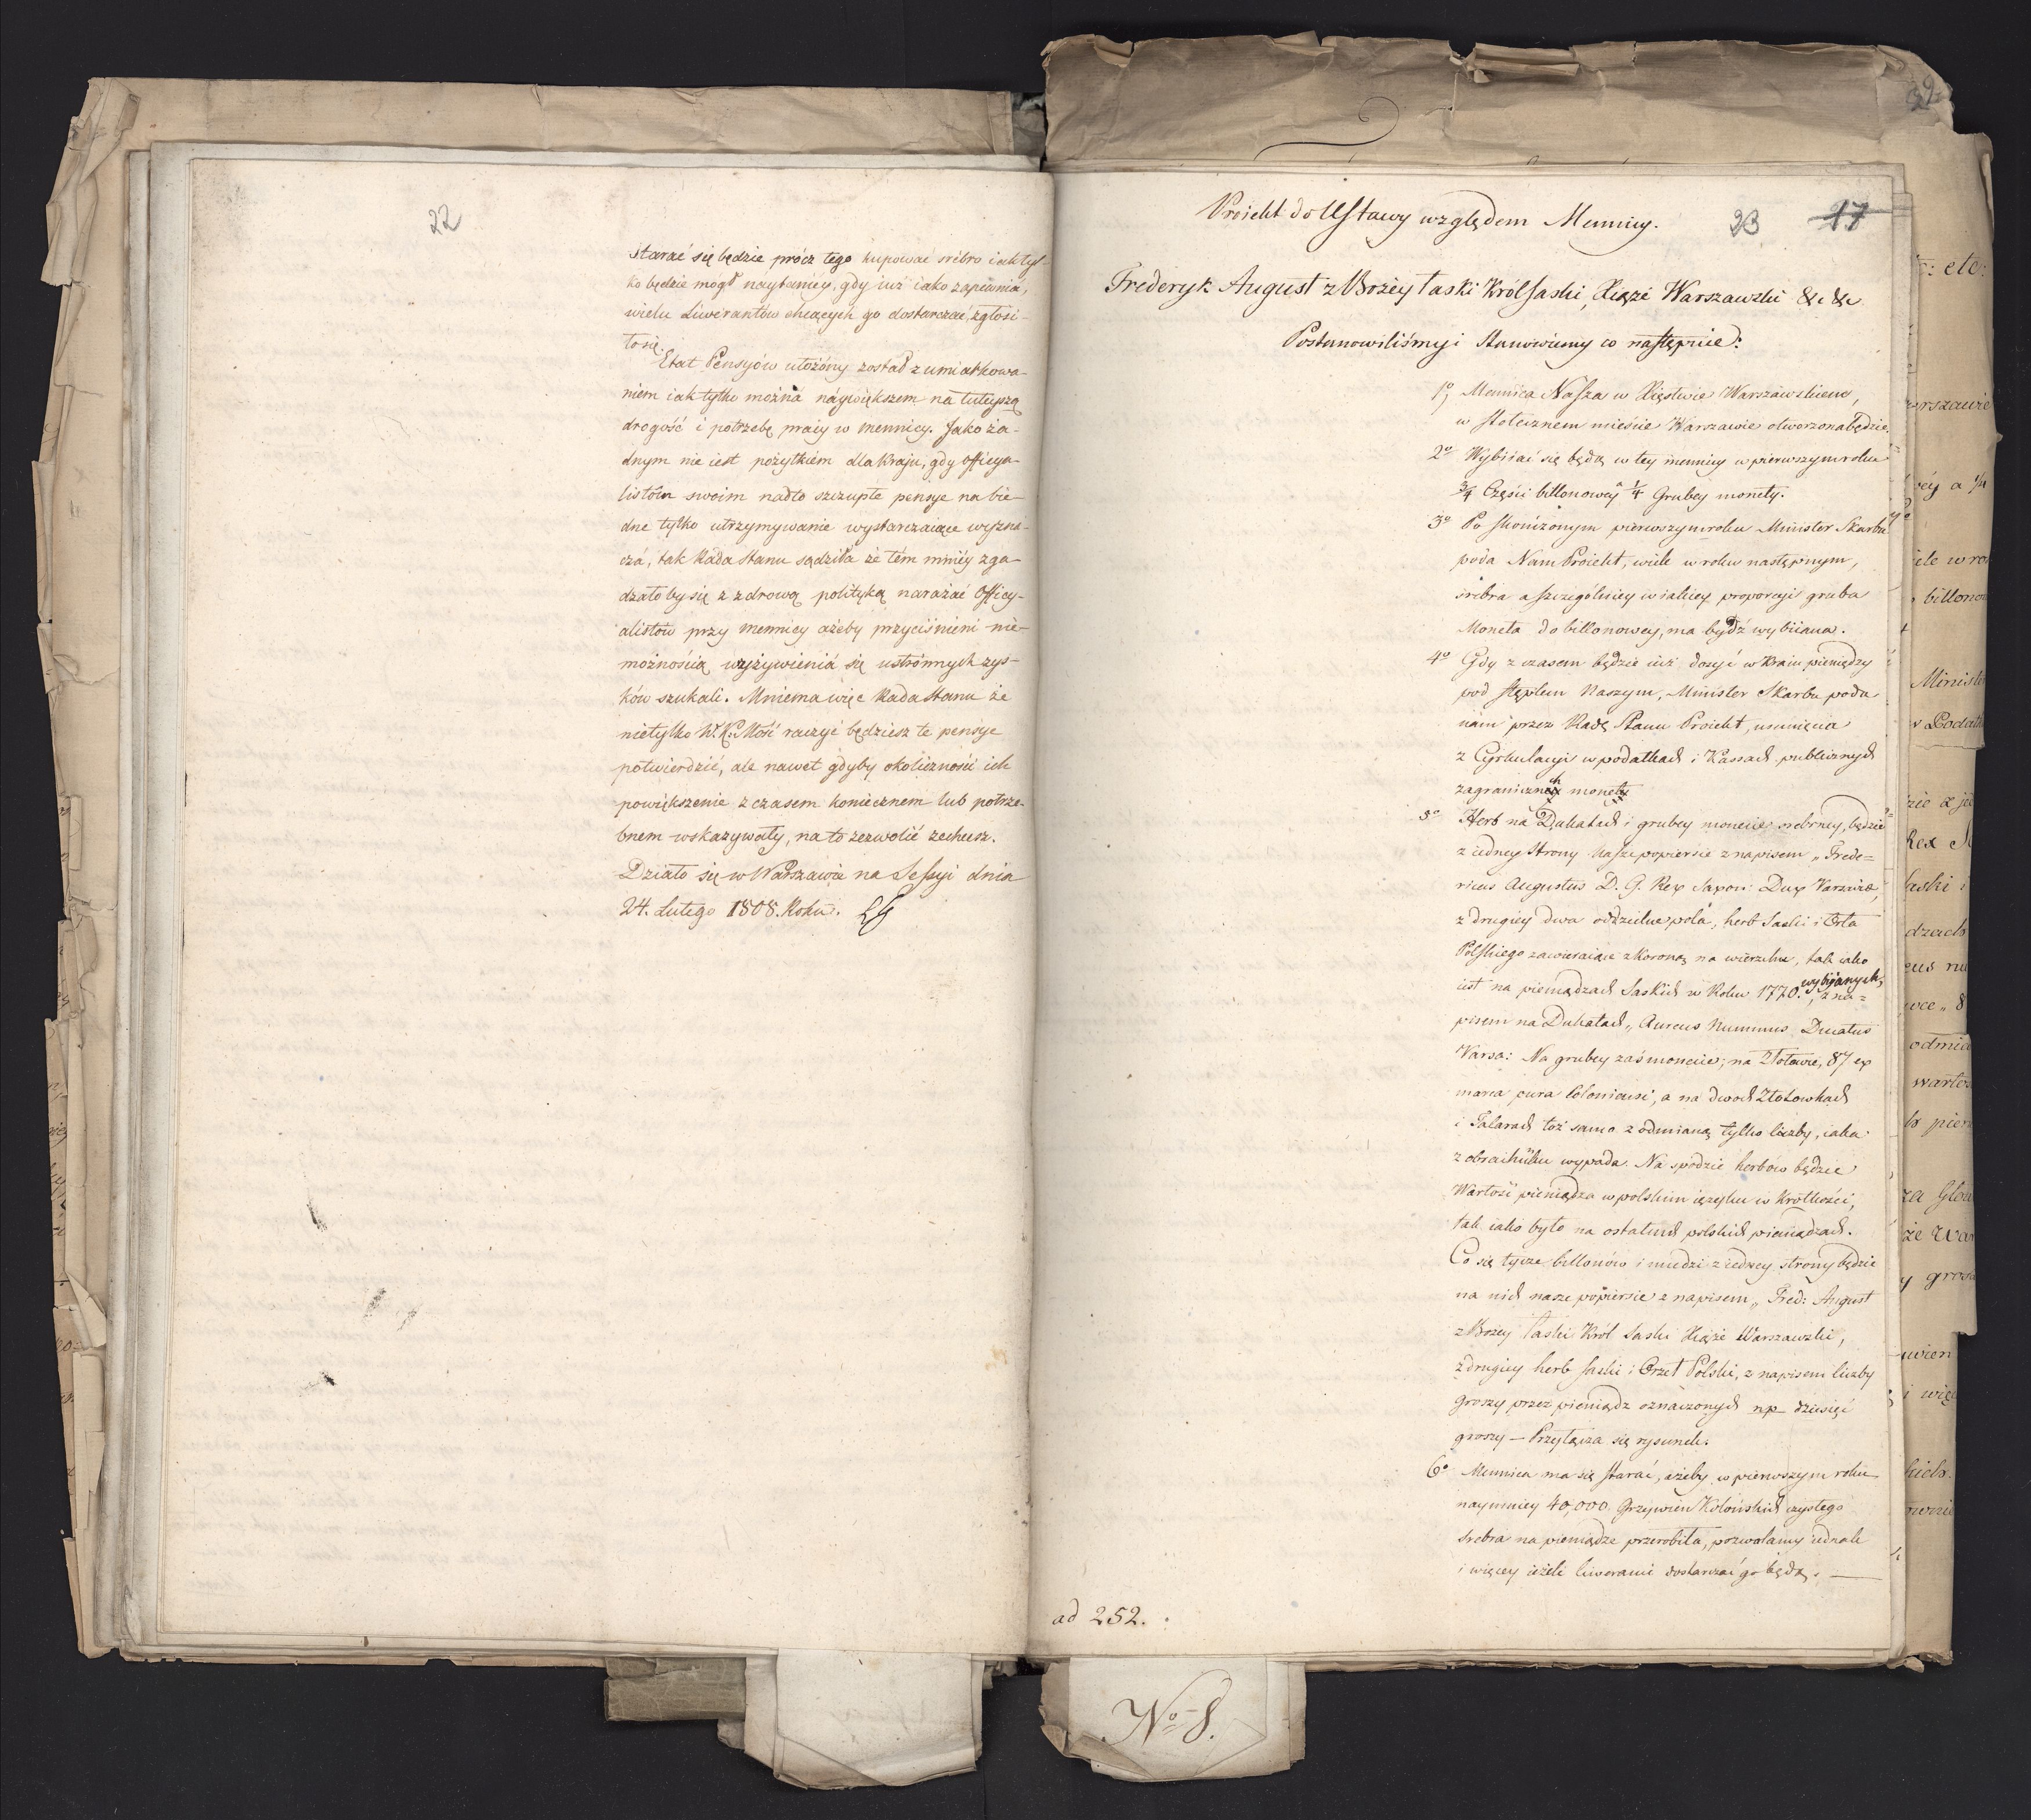 22
Starać się będzie prócz tego kupować srébro iak tyl-
ko będzie mógł náytaniéy, gdy iuż iako zapewnia,
wielu Liwerantów chcących go dostarczać, zgłosi-
ło się.
Etat Pensyów ułożóny został z umiarkowa-
niem iak tylko możná náywiększem na tuteyszą
drogość i potrzebę pracy w mennicy. Jako ża-
dnym nie iest pożytkiem dla Kraju, gdy Officya-
listóm swoim nadto szczupłe pensye na bie-
dne tylko utrzymywanie wystarczaiące wyzná-
czá, tak Ráda Stanu sądziła że tém mniéy zga-
dzało by się z zdrową polityką narażać Officy-
alistów przy mennicy ażeby przyciśnieni nie-
możnością wyżywieniá się ustrónnych zys-
ków szukali. Mniema więc Rada Stanu że
nietylko W. K. Mość raczyć będziesz te pensye
potwierdzić, ale nawet gdyby okoliczności ich
powiększenie z czasem koniecznem lub potrze-
bnem wskazywały, na to zezwolić zechcesz.
Działo się w Warszawie na Sessyi dnia
24. Lutego 1808. Roku.
32
23 17
Proiekt do Ustawy względem Mennicy.
Frederyk August z Bożey Łaski Król Saski, Xiążę Warszawski &c &c
Postanowiliśmy i Stanowiemy co następuie:
1o Mennica Nasza w Xięstwie Warszawskiem,
w stołecznem mieście Warszawie otworzona będzie.
2o Wybiiać się będą w tey mennicy w pierwszym roku
3/4 Części billonowey a 1/4 Grubey monety.
3o Po skończonym pierwszym roku Minister Skarbu
poda Nam Proiekt, wiele w roku następnym,
srébra a szczególniey w iakiey proporcyi gruba
Moneta do billonowey, ma bydź wybiiana.
4o Gdy z czasem będzie iuż dosyć w Kraiu pieniędzy
pod stęplem Naszym, Minister Skarbu poda
nam przez Radę Stanu Proiekt, usunięcia
z Cyrkulacyi w podatkach i Kassach publicznych
zagranicznych monet
5o Herb na Dukatach i grubey monecie srebrney, będzie
z iedney Strony Nasze popiersie z napisem „Frede=
ricus Augustus D. G. Rex Saxon: Dux Varsoviæ,
z drugiey dwa oddzielne pola, herb Saski i Orła
Polskiego zawieraiące z Koroną na wierzchu, tak iako
iest na pieniądzach Saskich w Roku 1770. wybiianych, z na=
pisem na Dukatach „Aureus Nummus Ducatus
Varsa: Na grubey zaś monecie; na Złotowce, 87 ex
marca pura Coloniensi, a na dwoch Złotowkach
i Talarach toż samo z odmianą tylko liczby, iaka
z obrachunku wypada. Na spodzie herbów będzie
Wartość pieniądza w polskim ięzyku w Krotkości,
tak iako było na ostatnich polskich pieniądzach.
Co się tycze billonów i miedzi z iedney strony będzie
na nich nasze popiersie z napisem „Fred: August
z Bożey Łaski Król Saski Xiąże Warszawski,
z drugiey herb Saski i Orzeł Polski, z napisem liczby
Groszy przez pieniądz oznaczonych np dziesięć
groszy — Przyłącza się rysunek.
6o Mennica ma się starać, ażeby w pierwszym roku
naymniey 40,000 Grzywien Kolońskich czystego
srebra na pieniądze przerobiła, pozwalamy iednak
i więcey ieżeli liweranci dostarczać go będą. —
ad 252.
No 8.